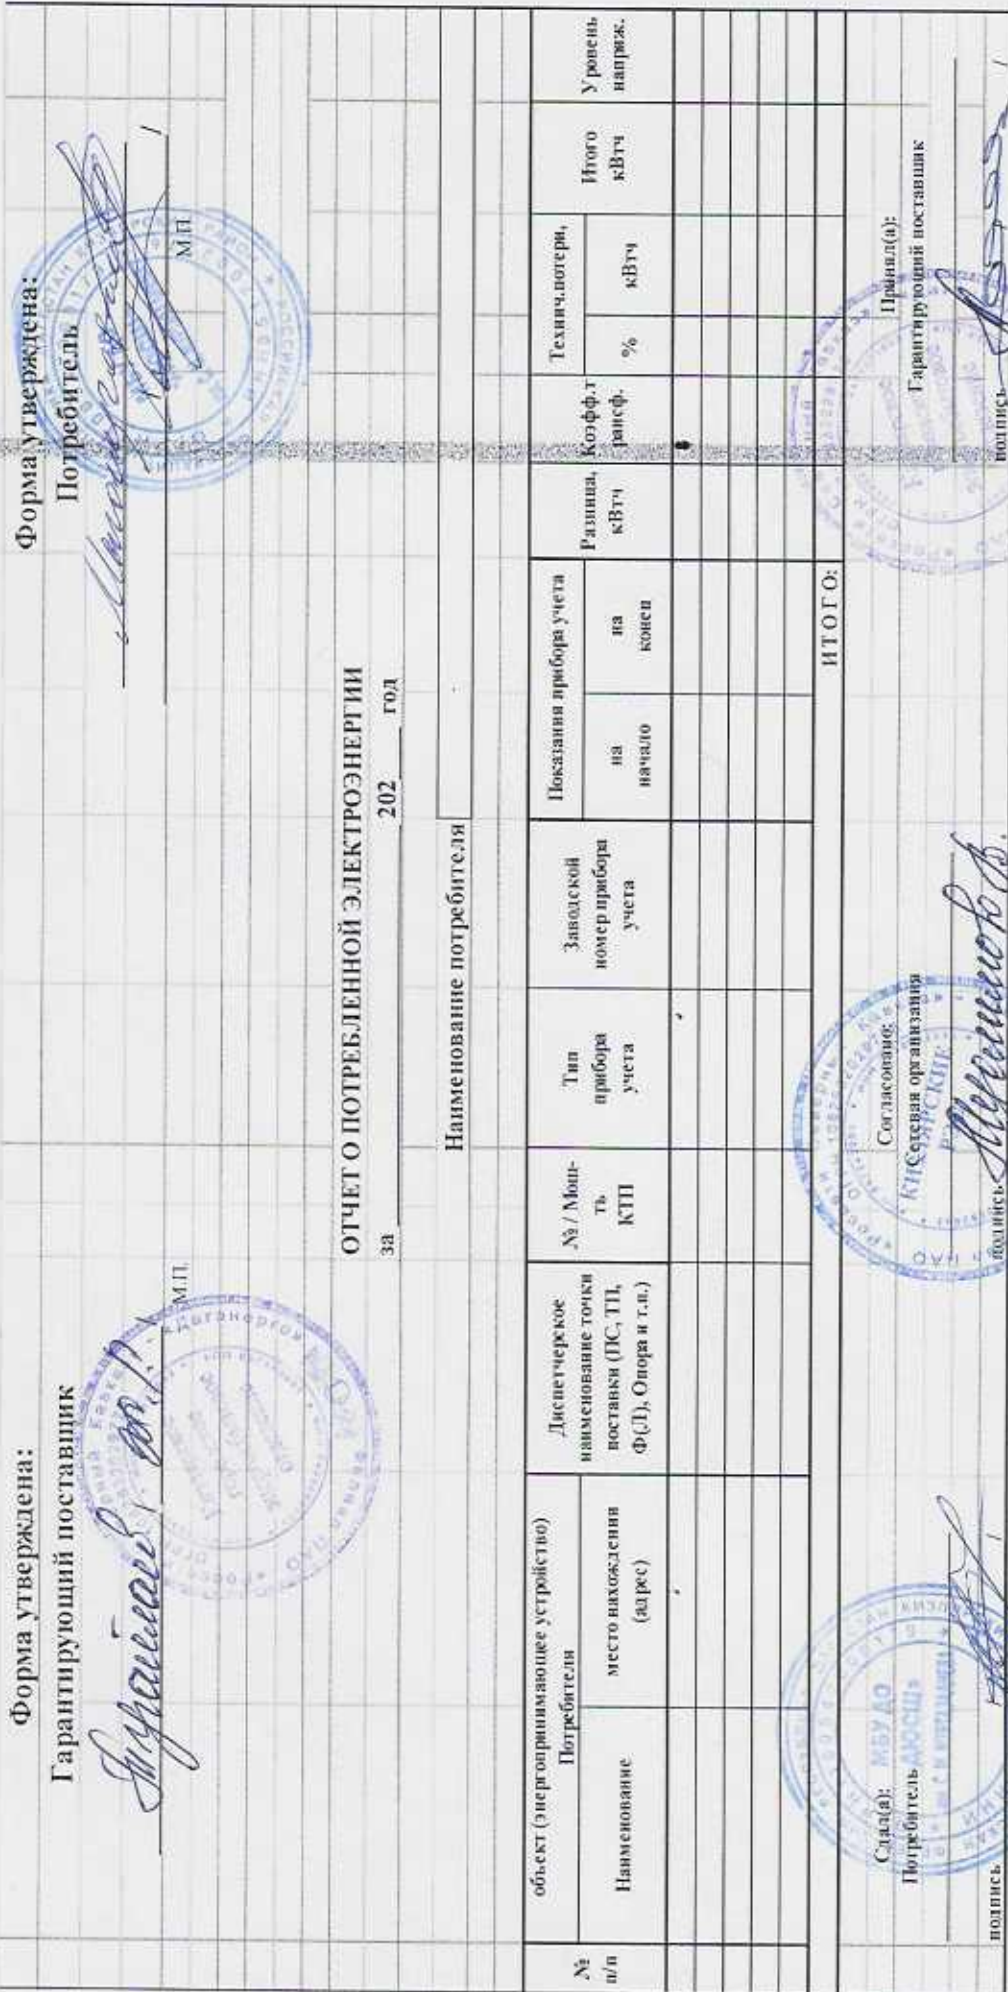 Форма утверждена:
Гарантирующий поставщик
М.П.
Форма утверждена:
Потребитель
М.П.
ОТЧЕТ О ПОТРЕБЛЕННОЙ ЭЛЕКТРОЭНЕРГИИ
за 202 год
Наименование потребителя
№ п/п
объект (энергопринимающее устройство) Потребителя
Наименование
место нахождения (адрес)
Диспетчерское наименование точки поставки (ПС, ТП, Ф(Л), Опора и т.п.)
№ / Мощ-ть КТП
Тип прибора учета
Заводской номер прибора учета
Показания прибора учета
на начало
на конец
Разница, кВтч
Коэфф.т рансф.
Технич.потери,
%
кВтч
Итого кВтч
Уровень напряж.
ИТОГО:
Сдал(а):
Потребитель
МБУ ДО
ДЮСШ»
подпись
Согласовано:
Сетевая организация
КИЗЛЯРСКИЕ
подпись
Принял(а):
Гарантирующий поставщик
подпись